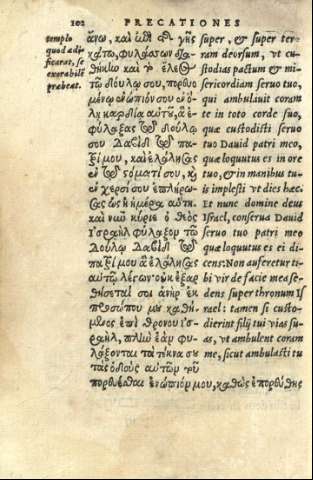 102 PRECATIONES
templo
quod ædi
ficarat, se
exorabilē
præbeat.
ἄνω, καὶ ἐπὶ τ γῆς
κάτω, φυλάσσων δια-
θήκην καὶ τ ἔλεος
τῷ δούλῳ σου, πορθυο
μένῳ ἐνώπιόν σου ἐν ὅ-
λῃ καρδίᾳ αὐτοῦ, ἃ ἐ-
φύλαξας τῷ δούλῳ
σου Δαβὶδ τῷ πα
τρί μου, καὶ ἐλάλησας
ἐν τῷ στόματί σου, κ
ἐν χερσί σου ἐπλήρω-
σας ὡς ἡ ἡμέρα αὕτη.
καὶ νῦν κύριε ὁ θεὸς
Ἰσραὴλ φύλαξον τῷ
δούλῳ Δαβὶδ τῷ
πατρί μου ἃ ἐλάλησας
αὐτῷ λέγων· οὐκ ἐξαρ
θήσεταί σοι ἀνὴρ ἐκ
προσώπου μου καθή-
μενος ἐπὶ θρόνου Ισ-
ραὴλ, πλὴν ἐὰν φυ-
λάξονται τὰ τέκνα σου
τὰς ὁδοὺς αὐτῶν τοῦ
πορεύεσθαι ἐνώπιόν μου, καθὼς ἐπορεύθης
super, & super ter-
ram deorsum, vt cu-
stodias pactum & mi-
sericordiam seruo tuo,
qui ambulauit coram
te in toto corde suo,
quæ custodisti seruo
tuo Dauid patri meo,
quæ loquutus es in ore
tuo, & in manibus tu-
is implesti vt dies hæc.
Et nunc domine deus
Israel, conserua Dauid
seruo tuo patri meo
quæ loquutus es ei di-
cens: Non auferetur ti-
bi vir de facie mea se-
dens super thronum Is
rael: tamen si custo-
dierint filij tui vias su-
as, vt ambulent coram
me, sicut ambulasti tu